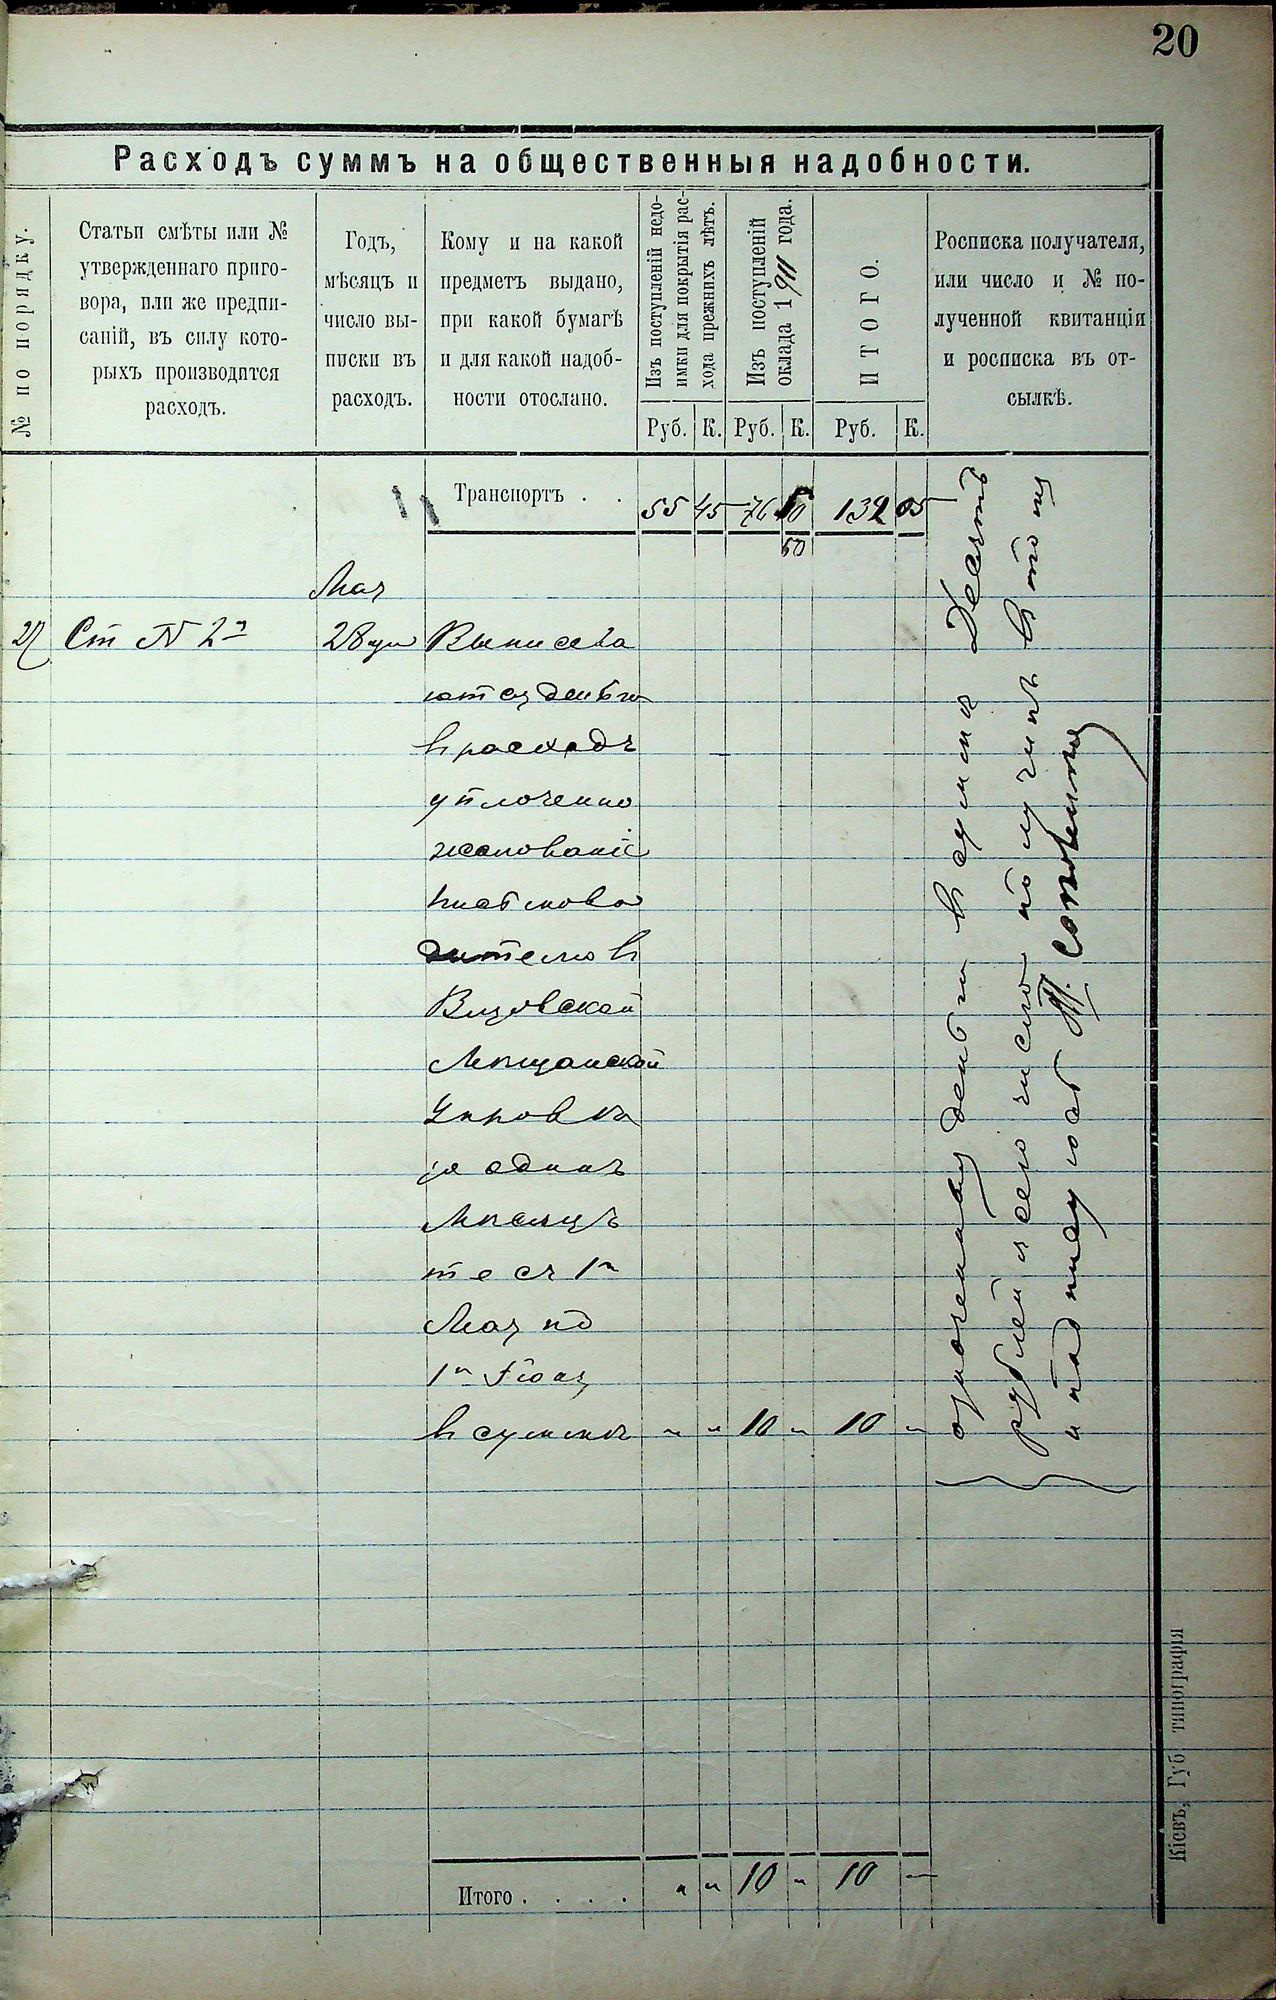 20
Расходъ суммъ на общественныя надобности.
№ по порядку.
Статьи смѣты или №
утвержденнаго приго-
вора, или же предпи-
саній, въ силу кото-
рыхъ производится
расходъ.
Годъ,
мѣсяцъ и
число вы-
писки въ
расходъ.
Кому и на какой
предметъ выдано,
при какой бумагѣ
и для какой надоб-
ности отослано.
Изъ поступленій недо-
имки для покрытія рас-
хода прежнихъ лѣтъ.
Изъ поступленій
оклада 1911 года.
ИТОГО.
Росписка получателя,
или число и № по-
лученной квитанціи
и росписка въ от-
сылкѣ.
Руб. К. Руб. К. Руб. К.
Транспортъ . . 55 45 76 132 05
60
Мая
Ст № 2й 28 Выписева
ются деньги
в расходъ
уплочено
жалованіе
письмово
дителю в
Мѣщанской
Управы
за одинъ
Мѣсяцъ
т е съ 1го
Мая по
1е Іюня
в суммѣ „ „ 10 „ 10 „
означеныи деньги в сумме Десять
рублей я сего число получилъ в том
и подписуюсь
Итого . . . . „ „ 10 „ 10 —
Кіевъ, Губ. типографія